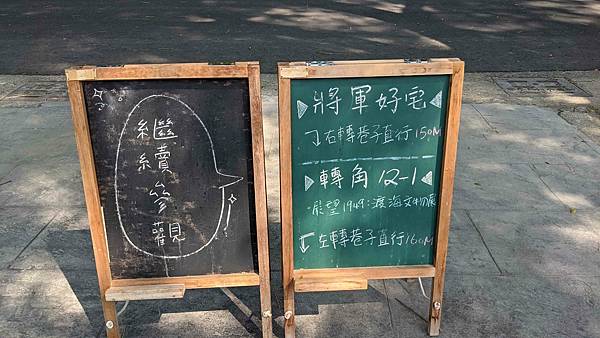 繼續參觀
將軍好宅
右轉巷子直行150M
轉角12-1
願望1949:渡海文物展
左轉巷子直行160M